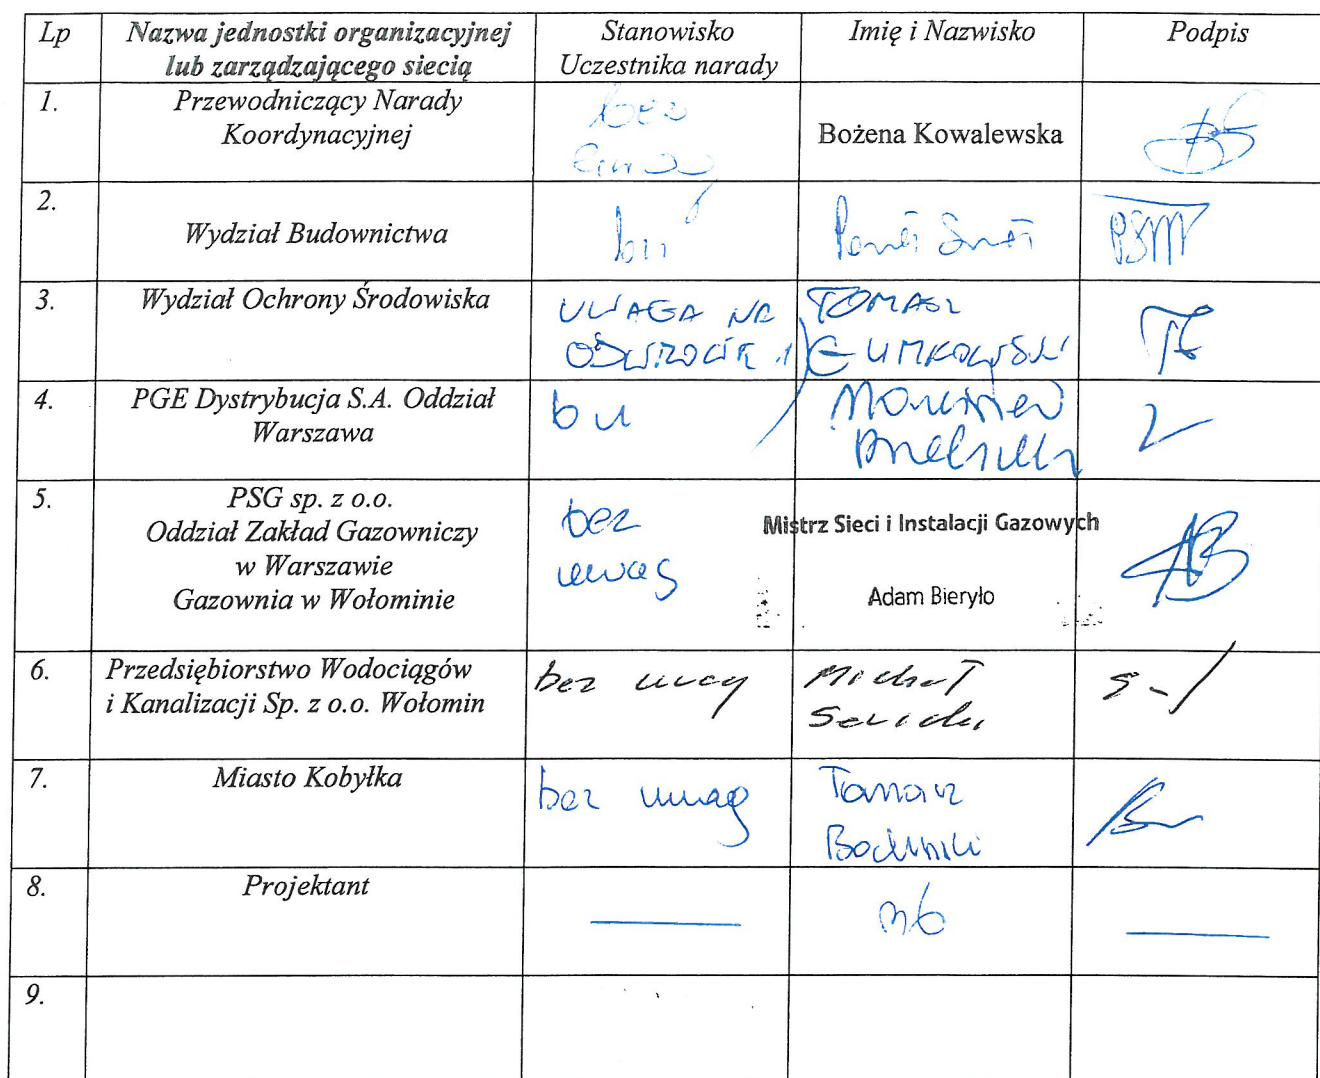 Lp
Nazwa jednostki organizacyjnej
lub zarządzającego siecią
Stanowisko
Uczestnika narady
Imię i Nazwisko
Podpis
1.
Przewodniczący Narady
Koordynacyjnej
bez
Bożena Kowalewska
2.
Wydział Budownictwa
3.
Wydział Ochrony Środowiska
UWAGA NA
ODWROCIE
TOMASZ
4.
PGE Dystrybucja S.A. Oddział
Warszawa
bu
5.
PSG sp. z o.o.
Oddział Zakład Gazowniczy
w Warszawie
Gazownia w Wołominie
bez
uwag
Mistrz Sieci i Instalacji Gazowych
Adam Bieryło
6.
Przedsiębiorstwo Wodociągów
i Kanalizacji Sp. z o.o. Wołomin
bez uwag
Michał
7.
Miasto Kobyłka
bez uwag
Tomasz
8.
Projektant
9.